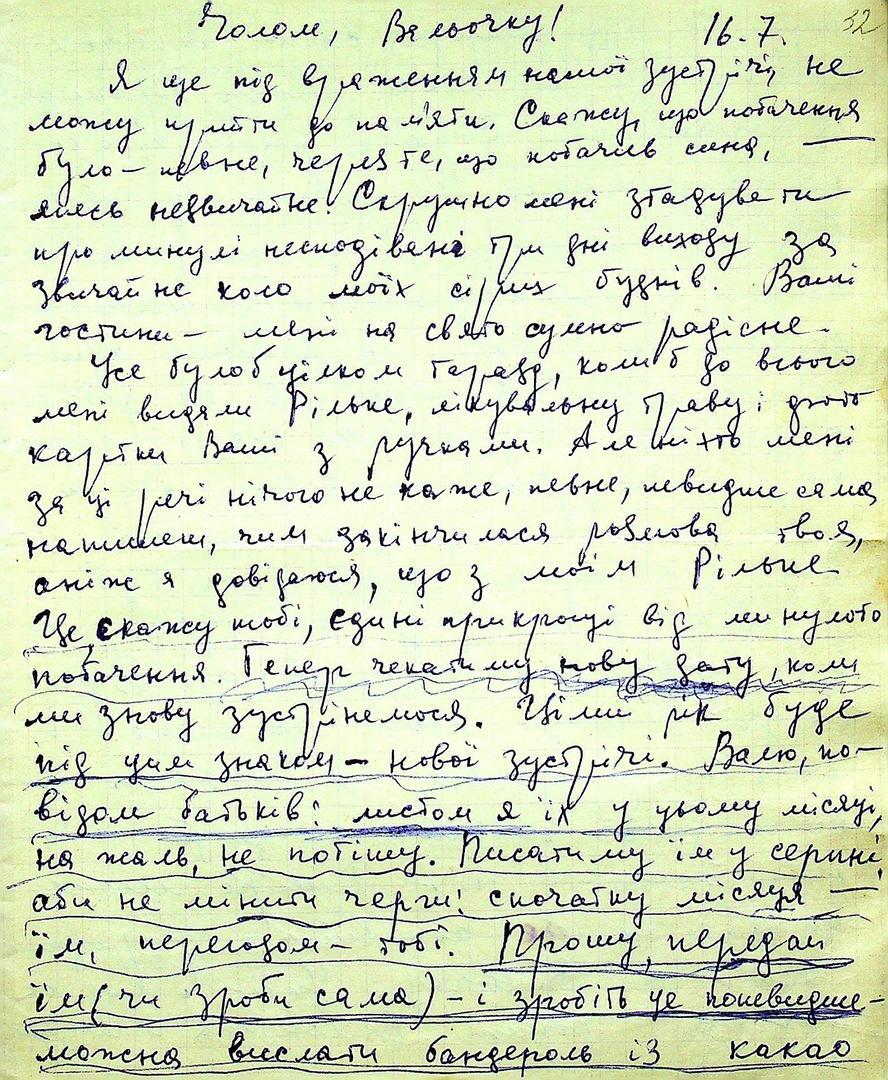 Чолом, Вальочку! 16.7. 32
Я ще під враженням нашої зустрічі, не
можу прийти до пам'яти. Скажу, що побачення
було – певне, через те, що побачив сина, —
якесь незвичайне. Скрушно мені згадувати
про минулі несподівані три дні виходу за
звичайне коло моїх сірих буднів. Ваші
гостини – мені на свято сумно радісне.
Усе було б цілком гаразд, коли б до всього
мені видали Рільке, лікувальну траву і фото
картки Ваші з ручками. Але ніхто мені
за ці речі нічого не каже, певне, швидше сама
напишеш, чим закінчилася розмова твоя,
аніж я довідаюся, що з моїм Рільке
Це, скажу тобі, єдині прикрощі від минулого
побачення. Тепер чекатиму нову дату, коли
ми знову зустрінемося. Цілий рік буде
під цим знаком – нової зустрічі. Валю, по-
відом батьків: листом я їх у цьому місяці,
на жаль, не потішу. Писатиму їм у серпні,
аби не мінити черги: спочатку місяця —
їм, перегодом – тобі. Прошу, передай
їм (чи зроби сама) – і зробіть це поневидше –
можна вислати бандероль із какао